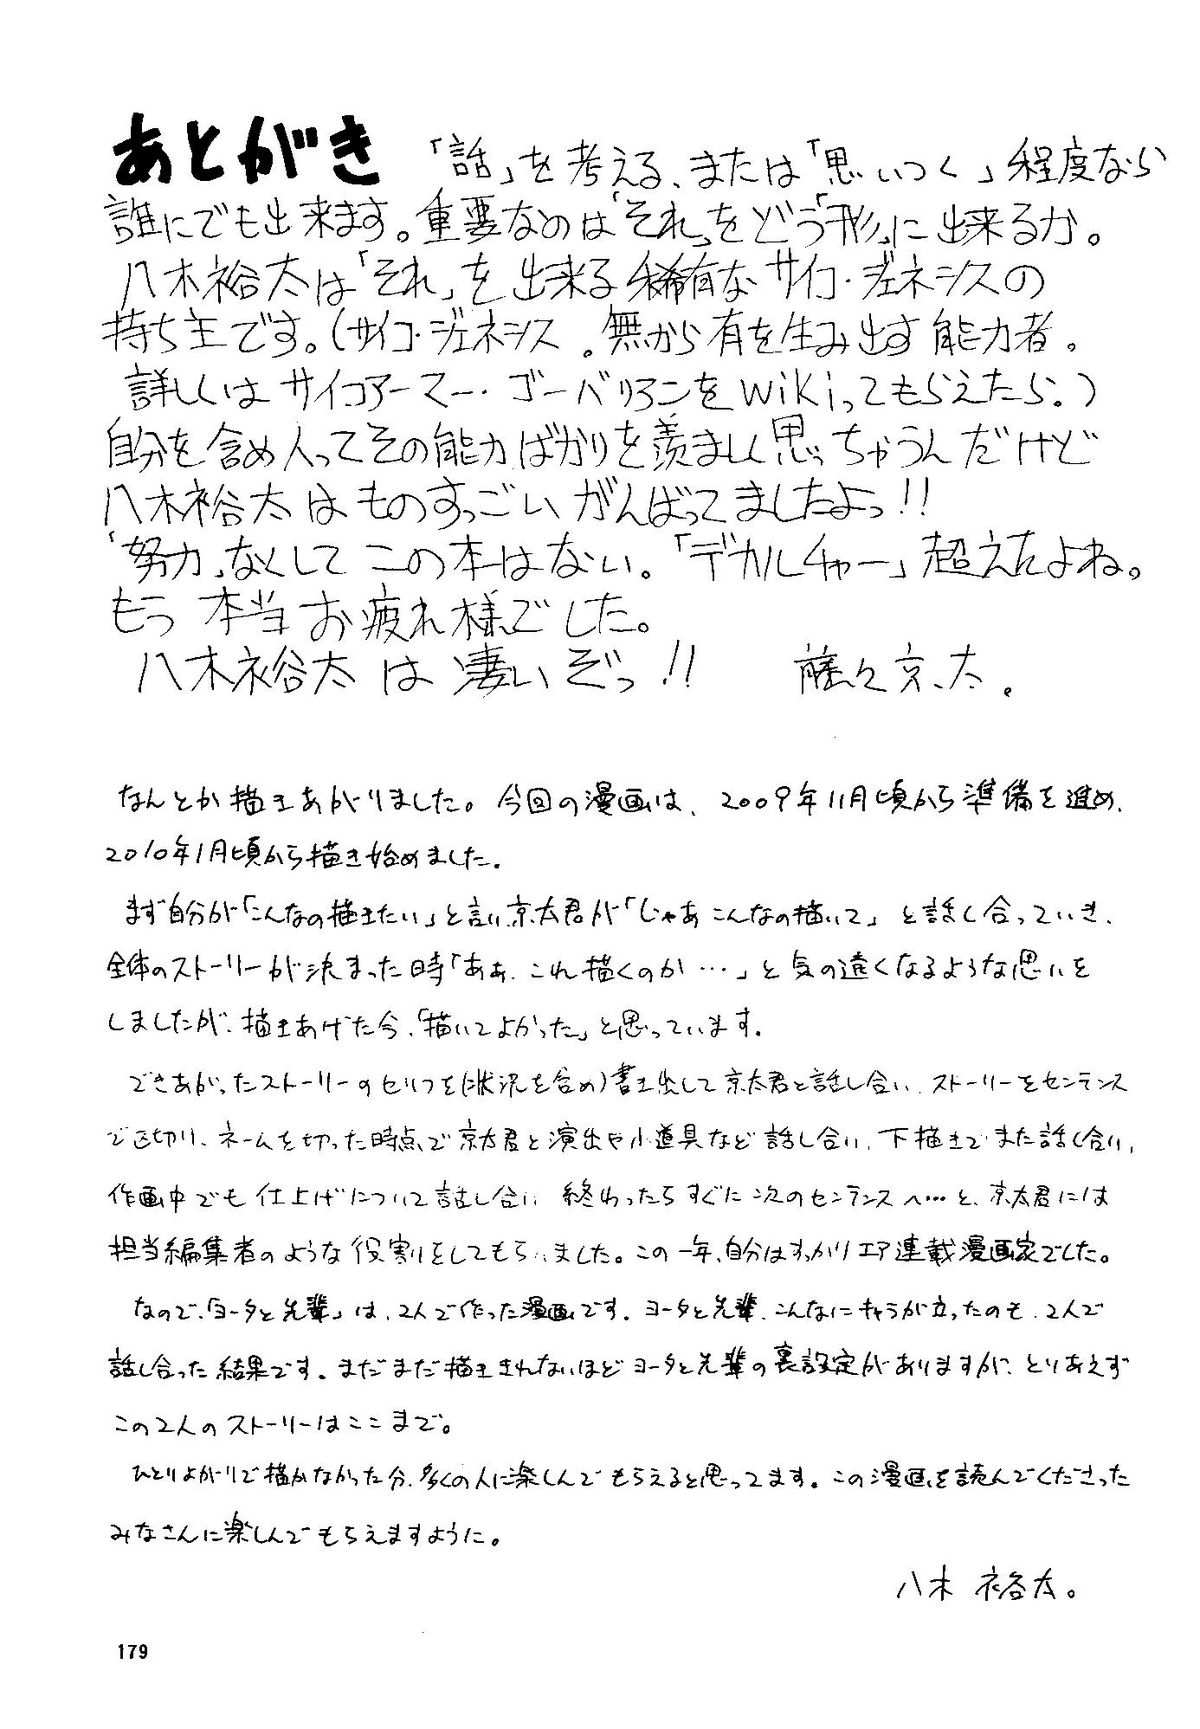 あとがき 「話」を考える、または「思いつく」程度なら
誰にでも出来ます。重要なのは「それ」をどう「形」に出来るか。
八木裕太は「それ」を出来る稀有なサイコ・ジェネシスの
持ち主です。(サイコ・ジェネシス。無から有を生み出す能力者。
詳しくはサイコアーマー・ゴーバリアンをwikiってもらえたら。)
自分を含め人ってその能力ばかりを羨ましく思っちゃうんだけど
八木裕太はものすっごいがんばってましたよっ!!
「努力」なくしてこの本はない。「デカルチャー」超えたよね。
もう本当お疲れ様でした。
八木裕太は凄いぞっ!! 藤久京太。
なんとか描きあがりました。今回の漫画は、2009年11月頃から準備を進め、
2010年1月頃から描き始めました。
まず自分が「こんなの描きたい」と言い京太君が「じゃあこんなの描いて」と話し合っていき、
全体のストーリーが決まった時「ああ、これ描くのか…」と気の遠くなるような思いを
しましたが、描きあげた今、「描いてよかった」と思っています。
できあがったストーリーのセリフを(状況を含め)書き出して京太君と話し合い、ストーリーをセンテンス
で区切り、ネームを切った時点で京太君と演出や小道具など話し合い、下描きでまた話し合い、
作画中でも仕上げについて話し合い 終わったらすぐに次のセンテンスへ…と、京太君には
担当編集者のような役割をしてもらいました。この一年、自分はすっかりエア連載漫画家でした。
なので、「ヨータと先輩」は、2人で作った漫画です。ヨータと先輩、こんなにキャラが立ったのも、2人で
話し合った結果です。まだまだ描ききれないほどヨータと先輩の裏設定がありますが、とりあえず
この2人のストーリーはここまで。
ひとりよがりで描かなかった分、多くの人に楽しんでもらえると思ってます。この漫画を読んでくださった
みなさんに楽しんでもらえますように。
八木裕太。
179